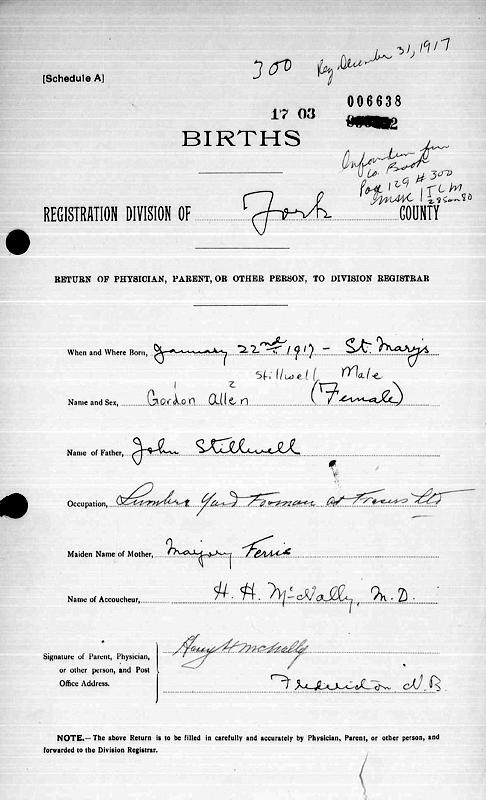 300 Reg December 31, 1917
[Schedule A]
006638
17 03
BIRTHS
Information from
Co. Book
Page 129 # 300
28 Jan 80
REGISTRATION DIVISION OF York COUNTY
RETURN OF PHYSICIAN, PARENT, OR OTHER PERSON, TO DIVISION REGISTRAR
When and Where Born, January 22nd 1917 - St. Marys
Stillwell Male
Name and Sex, Gordon Allen (Female)
1 2
Name of Father, John Stillwell
Occupation, Lumber Yard Foreman at Frasers Ltd
Maiden Name of Mother, Marjory Ferris
Name of Accoucheur, H. H. McNally, M.D.
Signature of Parent, Physician,
or other person, and Post
Office Address.
Harry H McNally
Fredericton N.B.
NOTE.—The above Return is to be filled in carefully and accurately by Physician, Parent, or other person, and
forwarded to the Division Registrar.